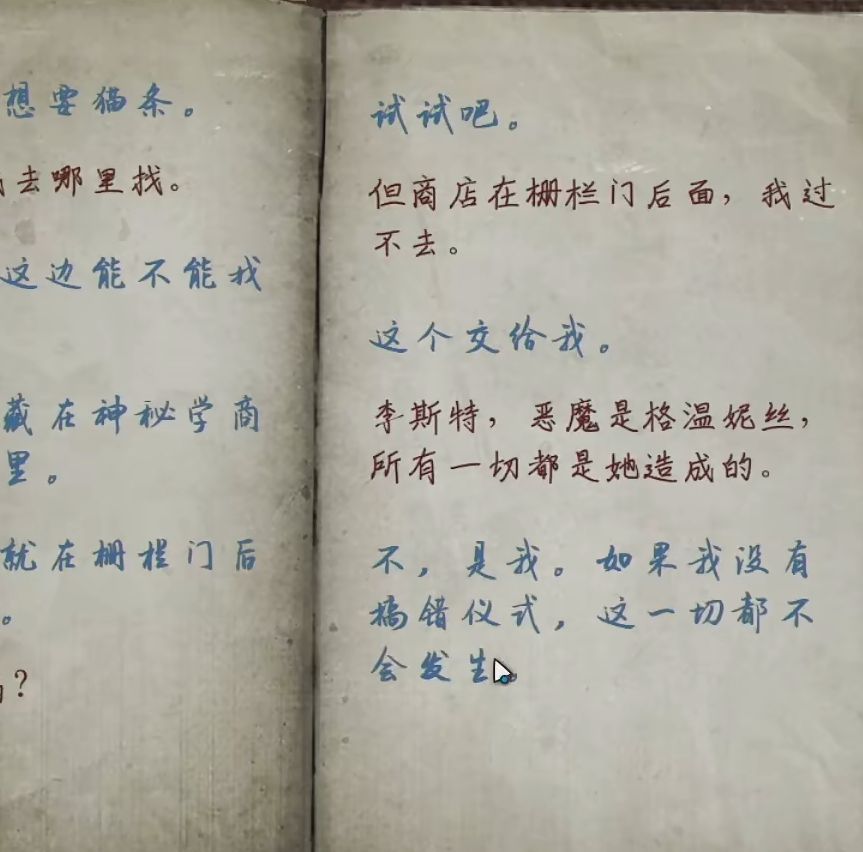 想要猫条。
去哪里找。
这边能不能找
藏在神秘学商
里。
就在栅栏门后
。
？
试试吧。
但商店在栅栏门后面，我过
不去。
这个交给我。
李斯特，恶魔是格温妮丝，
所有一切都是她造成的。
不，是我。如果我没有
搞错仪式，这一切都不
会发生。